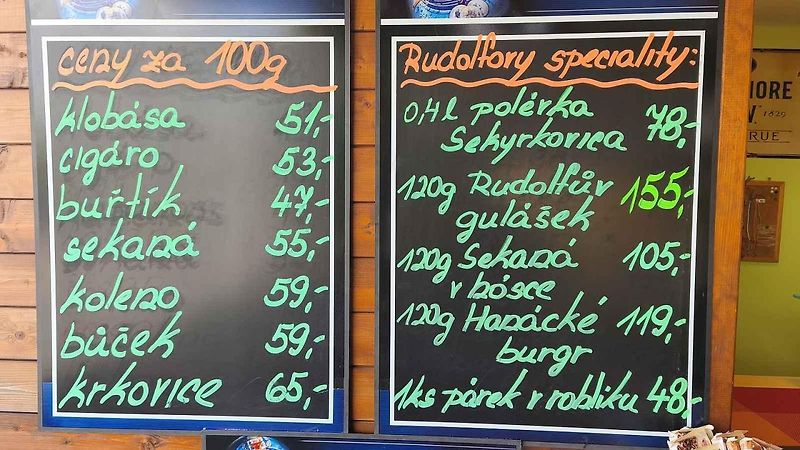 ceny za 100g
klobása 51,-
cigáro 53,-
buřtík 47,-
sekaná 55,-
koleno 59,-
bůček 59,-
krkovice 65,-
Rudolfovy speciality:
0,4l polévka
Sekyrkovica 78,-
120g Rudolfův 155,-
gulášek
120g Sekaná 105,-
v bósce
120g Hanácké 119,-
burgr
1ks párek v rohliku 48,-
MORE
1829
RUE